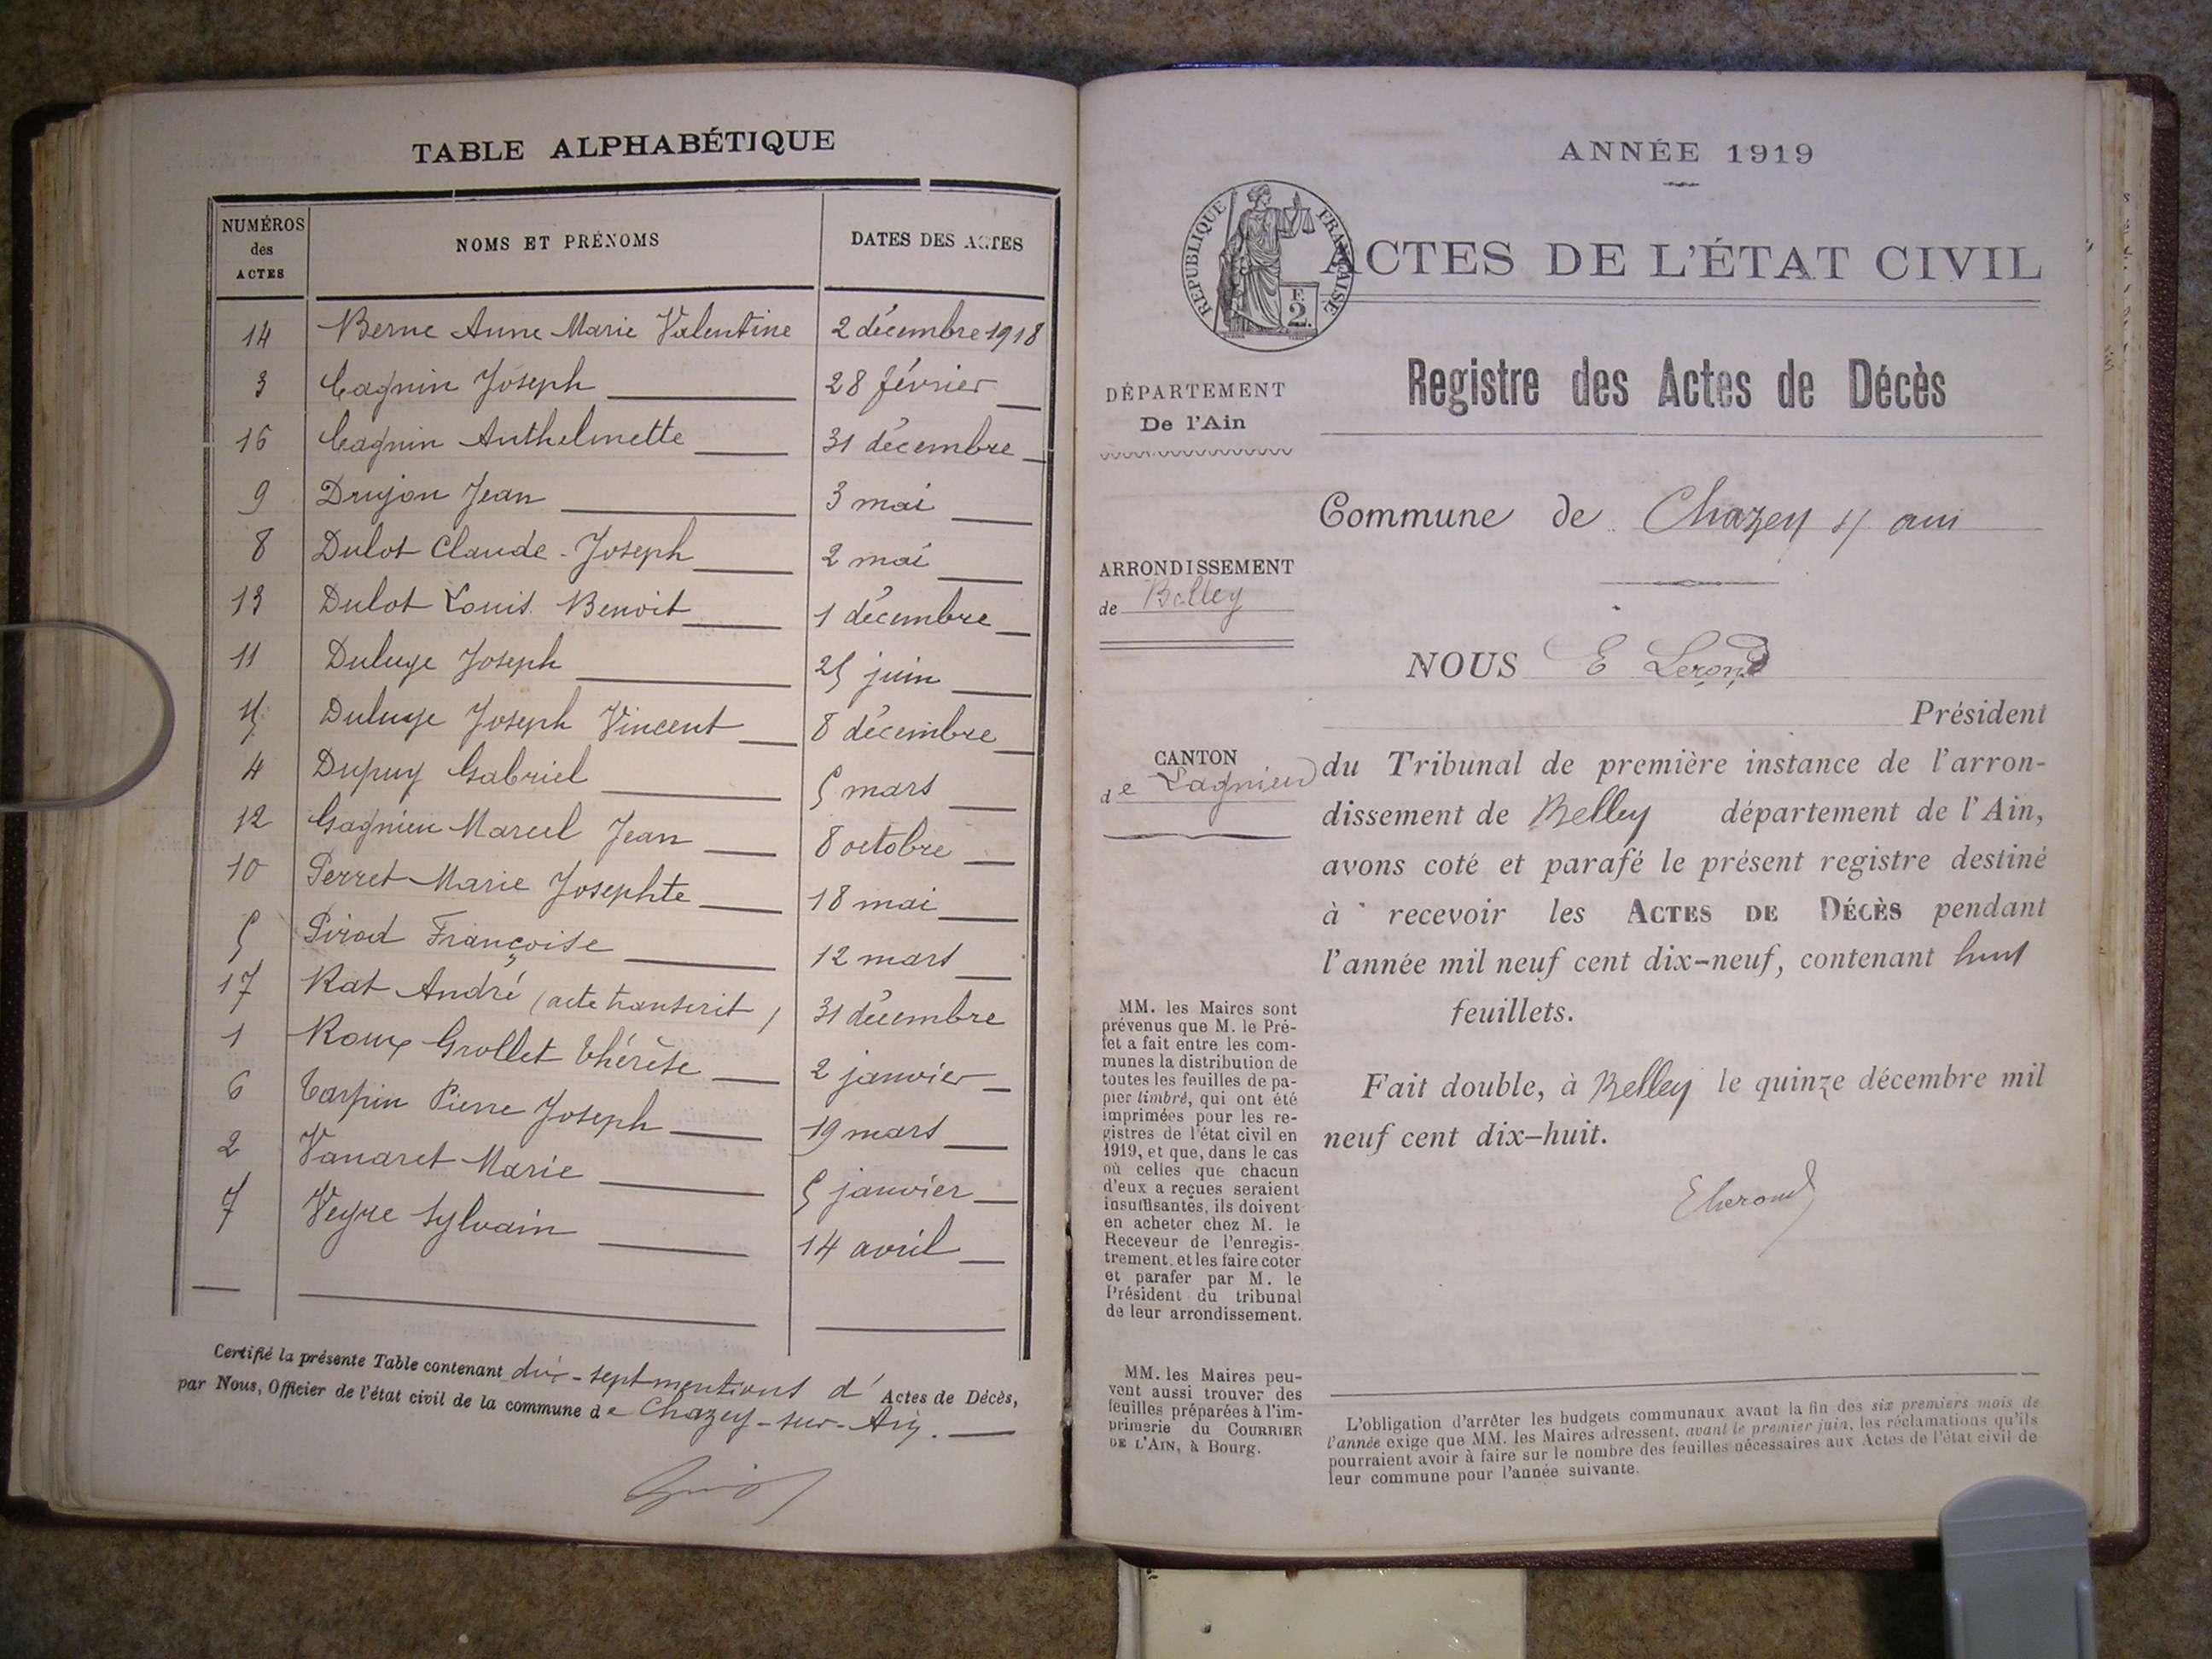 TABLE ALPHABÉTIQUE
NUMÉROS des ACTES NOMS ET PRÉNOMS DATES DES ACTES
14 Berne Anne Marie Valentine 2 décembre 1918
3 Cagnin Joseph 28 février
16 Cagnin Anthelmette 31 décembre
9 Drujon Jean 3 mai
8 Dulot Claude-Joseph 2 mai
13 Dulot Louis Benoit 1 décembre
11 Duluye Joseph 25 juin
Duluye Joseph Vincent 8 décembre
4 Dupuy Gabriel 5 mars
12 Gagnieu Marcel Jean 8 octobre
10 Perret Marie Josephte 18 mai
5 Pirod Françoise 12 mars
17 Rat André (acte transcrit) 31 décembre
1 Roux Grollet Thérèse 2 janvier
6 Tarpin Pierre Joseph 19 mars
2 Vanaret Marie 5 janvier
7 Veyre Sylvain 14 avril
Certifié la présente Table contenant dix-sept mentions d' Actes de Décès,
par Nous, Officier de l'état civil de la commune de Chazey-sur-Ain.
ANNÉE 1919
RÉPUBLIQUE FRANÇAISE
F. 2.
ACTES DE L'ÉTAT CIVIL
Registre des Actes de Décès
DÉPARTEMENT
De l'Ain
Commune de Chazey s/ ain
ARRONDISSEMENT
de Belley
NOUS E Lerond
Président
CANTON
de Lagnieu
du Tribunal de première instance de l'arron-
dissement de Belley département de l'Ain,
avons coté et parafé le présent registre destiné
à recevoir les ACTES DE DÉCÈS pendant
l'année mil neuf cent dix-neuf, contenant huit
feuillets.
Fait double, à Belley le quinze décembre mil
neuf cent dix-huit.
ELerond
MM. les Maires sont
prévenus que M. le Pré-
fet a fait entre les com-
munes la distribution de
toutes les feuilles de pa-
pier timbré, qui ont été
imprimées pour les re-
gistres de l'état civil en
1919, et que, dans le cas
où celles que chacun
d'eux a reçues seraient
insuffisantes, ils doivent
en acheter chez M. le
Receveur de l'enregis-
trement, et les faire coter
et parafer par M. le
Président du tribunal
de leur arrondissement.
MM. les Maires peu-
vent aussi trouver des
feuilles préparées à l'im-
primerie du COURRIER
DE L'AIN, à Bourg.
L'obligation d'arrêter les budgets communaux avant la fin des six premiers mois de
l'année exige que MM. les Maires adressent, avant le premier juin, les réclamations qu'ils
pourraient avoir à faire sur le nombre des feuilles nécessaires aux Actes de l'état civil de
leur commune pour l'année suivante.